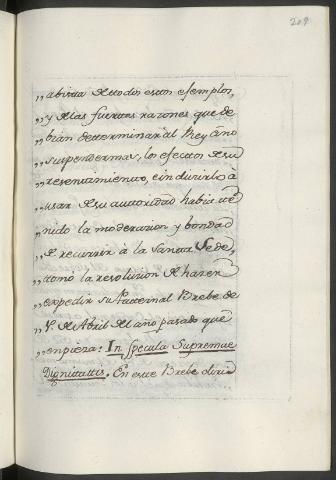 209
„ abista de todos estos exemplos,
„ y de las fuertes razones que de
„ bian determinar al Rey à no
„ suspender mas, los efectos de su
„ resentimiento, e inducirlo à
„ usar de su autoridad habia te
„ nido la moderacion y bondad
„ de recurrir à la Santa Sede,
„ tomó la resolucion de hacer
„ expedir su Paternal Brebe de
„ de Abril del año pasado que
„ empieza: In Specula Supremae
Dignitatis. En este Brebe